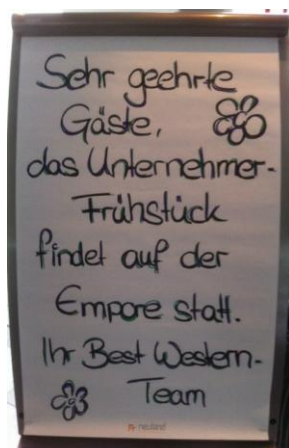 Sehr geehrte
Gäste,
das Unternehmer-
Frühstück
findet auf der
Empore statt.
Ihr Best Western-
Team
neuland